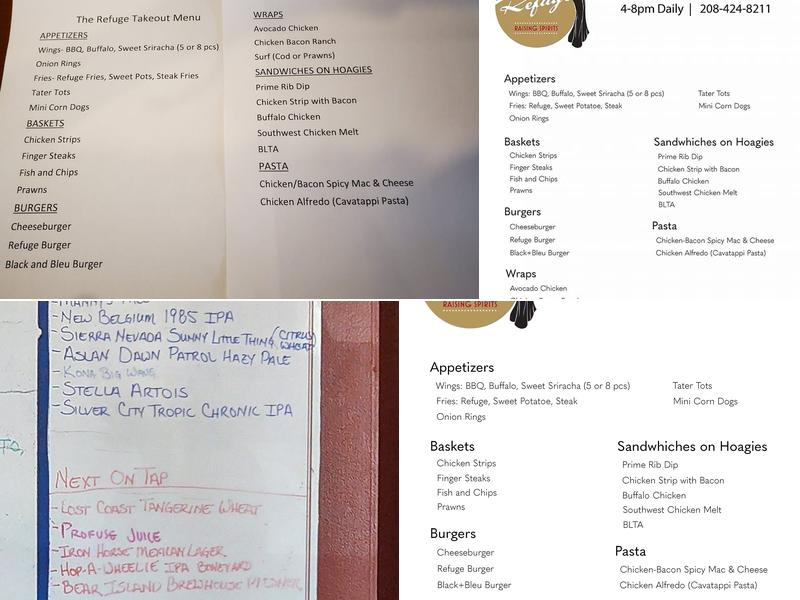 The Refuge Takeout Menu
APPETIZERS
Wings- BBQ, Buffalo, Sweet Sriracha (5 or 8 pcs)
Onion Rings
Fries- Refuge Fries, Sweet Pots, Steak Fries
Tater Tots
Mini Corn Dogs
BASKETS
Chicken Strips
Finger Steaks
Fish and Chips
Prawns
BURGERS
Cheeseburger
Refuge Burger
Black and Bleu Burger
WRAPS
Avocado Chicken
Chicken Bacon Ranch
Surf (Cod or Prawns)
SANDWICHES ON HOAGIES
Prime Rib Dip
Chicken Strip with Bacon
Buffalo Chicken
Southwest Chicken Melt
BLTA
PASTA
Chicken/Bacon Spicy Mac & Cheese
Chicken Alfredo (Cavatappi Pasta)
Refuge
RAISING SPIRITS
4-8pm Daily | 208-424-8211
Appetizers
Wings: BBQ, Buffalo, Sweet Sriracha (5 or 8 pcs)
Fries: Refuge, Sweet Potatoe, Steak
Onion Rings
Tater Tots
Mini Corn Dogs
Baskets
Chicken Strips
Finger Steaks
Fish and Chips
Prawns
Burgers
Cheeseburger
Refuge Burger
Black+Bleu Burger
Wraps
Avocado Chicken
Sandwhiches on Hoagies
Prime Rib Dip
Chicken Strip with Bacon
Buffalo Chicken
Southwest Chicken Melt
BLTA
Pasta
Chicken-Bacon Spicy Mac & Cheese
Chicken Alfredo (Cavatappi Pasta)
- NEW BELGIUM 1985 IPA
- SIERRA NEVADA SUNNY LITTLE THING (CITRUS WHEAT)
- ASLAN DAWN PATROL HAZY PALE
- KONA BIG WAVE
- STELLA ARTOIS
- SILVER CITY TROPIC CHRONIC IPA
NEXT ON TAP
- LOST COAST TANGERINE WHEAT
- PROFUSE JUICE
- IRON HORSE MEXICAN LAGER
- HOP-A-WHEELIE IPA BONEYARD
- BEAR ISLAND BREWHOUSE
RAISING SPIRITS
Appetizers
Wings: BBQ, Buffalo, Sweet Sriracha (5 or 8 pcs)
Fries: Refuge, Sweet Potatoe, Steak
Onion Rings
Tater Tots
Mini Corn Dogs
Baskets
Chicken Strips
Finger Steaks
Fish and Chips
Prawns
Burgers
Cheeseburger
Refuge Burger
Black+Bleu Burger
Sandwhiches on Hoagies
Prime Rib Dip
Chicken Strip with Bacon
Buffalo Chicken
Southwest Chicken Melt
BLTA
Pasta
Chicken-Bacon Spicy Mac & Cheese
Chicken Alfredo (Cavatappi Pasta)